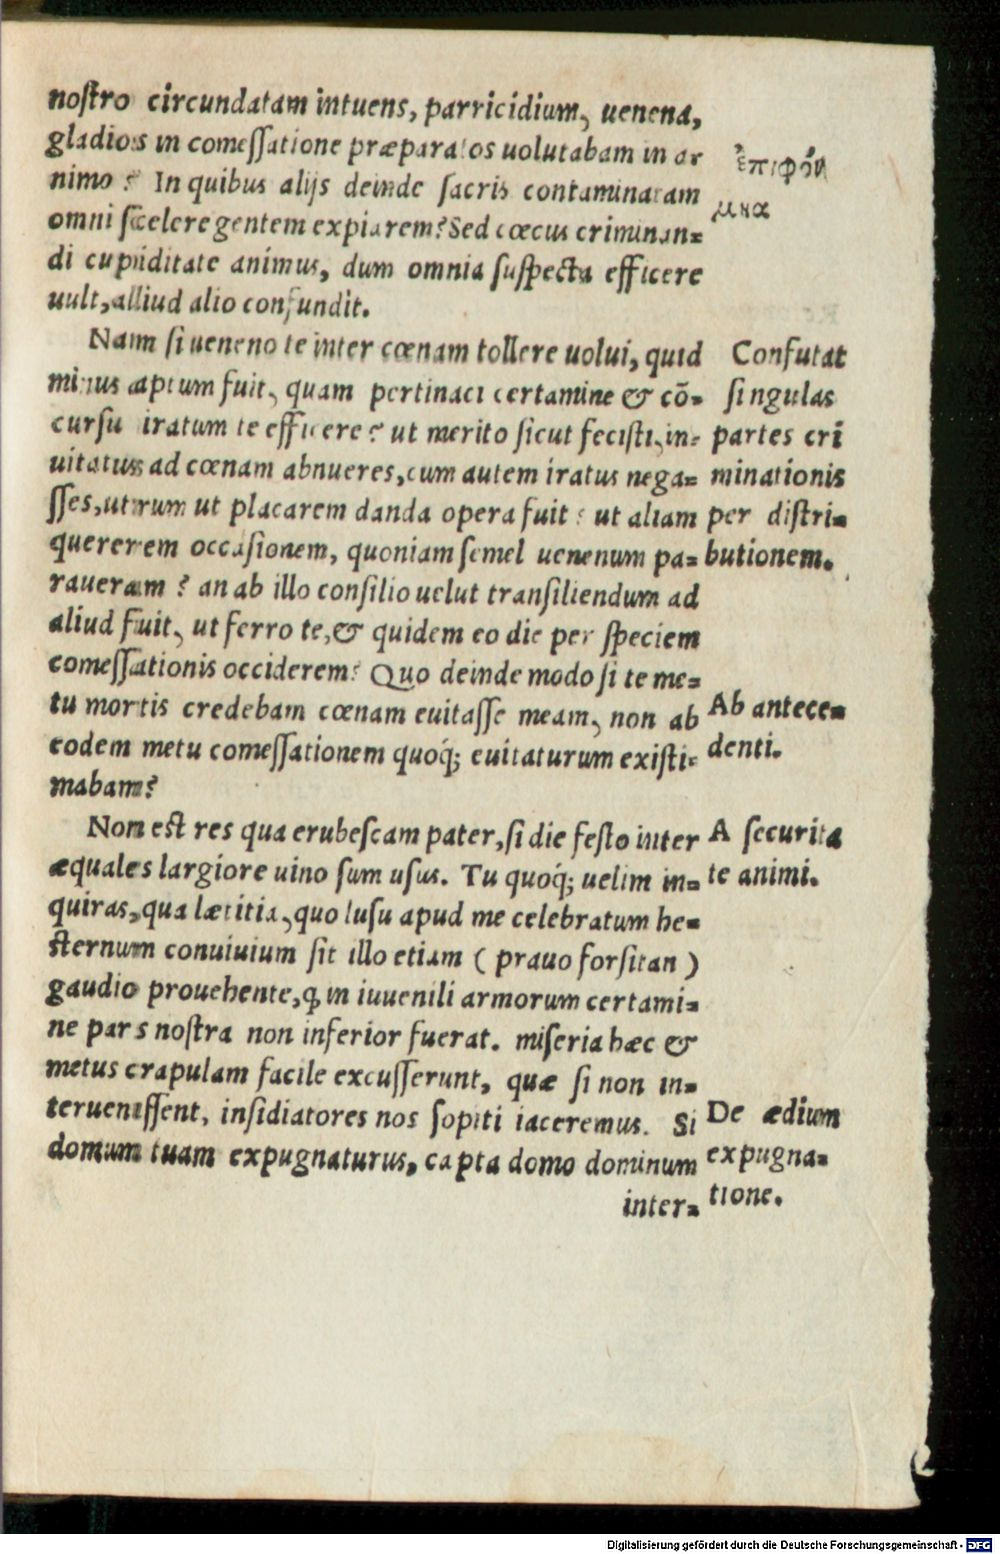 nostro circundatam intuens, parricidium, uenena,
gladios in comessatione præparatos uolutabam in a
nimo? In quibus alijs deinde sacris contaminatam
omni scelere gentem expiarem? Sed cœcus criminan=
di cupiditate animus, dum omnia suspecta efficere
uult, aliud alio confundit.
Nam si ueneno te inter cœnam tollere uolui, quid
minus aptum fuit, quam pertinaci certamine & cõ=
cursu iratum te efficere? ut merito sicut fecisti, in=
uitatus ad cœnam abnueres, cum autem iratus nega=
sses, utrum ut placarem danda opera fuit? ut aliam
quererem occasionem, quoniam semel uenenum pa=
raueram? an ab illo consilio uelut transiliendum ad
aliud fuit, ut ferro te, & quidem eo die per speciem
comessationis occiderem? Quo deinde modo si te me=
tu mortis credebam cœnam euitasse meam, non ab
eodem metu comessationem quoq́; euitaturum existi=
mabam?
Non est res qua erubescam pater, si die festo inter
æquales largiore uino sum usus. Tu quoq́; uelim in=
quiras, qua lætitia, quo lusu apud me celebratum he=
sternum conuiuium sit illo etiam (prauo forsitan)
gaudio prouehente, ꝙ in iuuenili armorum certami=
ne pars nostra non inferior fuerat. miseria hæc &
metus crapulam facile excusserunt, quæ si non in=
teruenissent, insidiatores nos sopiti iaceremus. Si
domum tuam expugnaturus, capta domo dominum
inter=
ἐπιφών
μκα
Confutat
singulas
partes cri
minationis
per distri=
butionem.
Ab antece=
denti.
A securita
te animi.
De ædium
expugna=
tione.
Digitalisierung gefördert durch die Deutsche Forschungsgemeinschaft - DFG